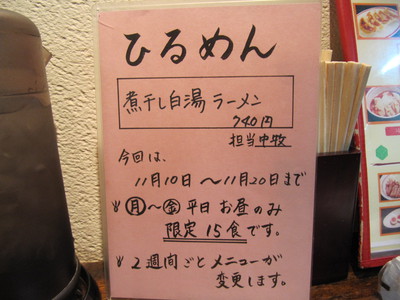 ひるめん
煮干し白湯ラーメン
740円
担当中牧
今回は、
11月10日〜11月20日まで
月〜金平日お昼のみ
限定15食です。
2週間ごとメニューが
変更します。